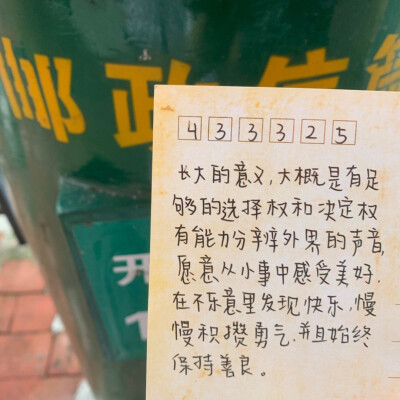 邮政信筒
433325
长大的意义,大概是有足
够的选择权和决定权
有能力分辨外界的声音,
愿意从小事中感受美好.
在不乐意里发现快乐,慢
慢积攒勇气,并且始终
保持善良。
开
1